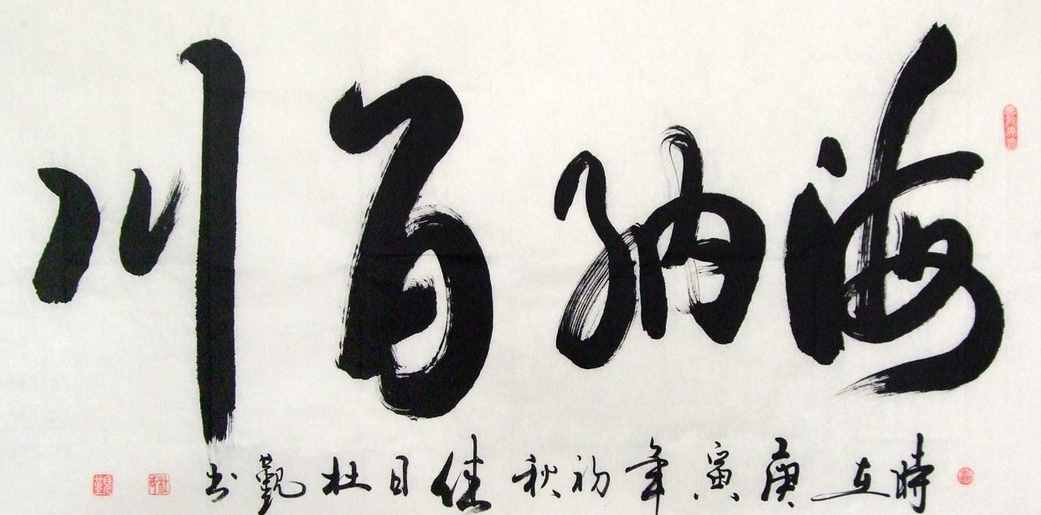 海纳百川
時在庚寅年初秋佳日杜觐书